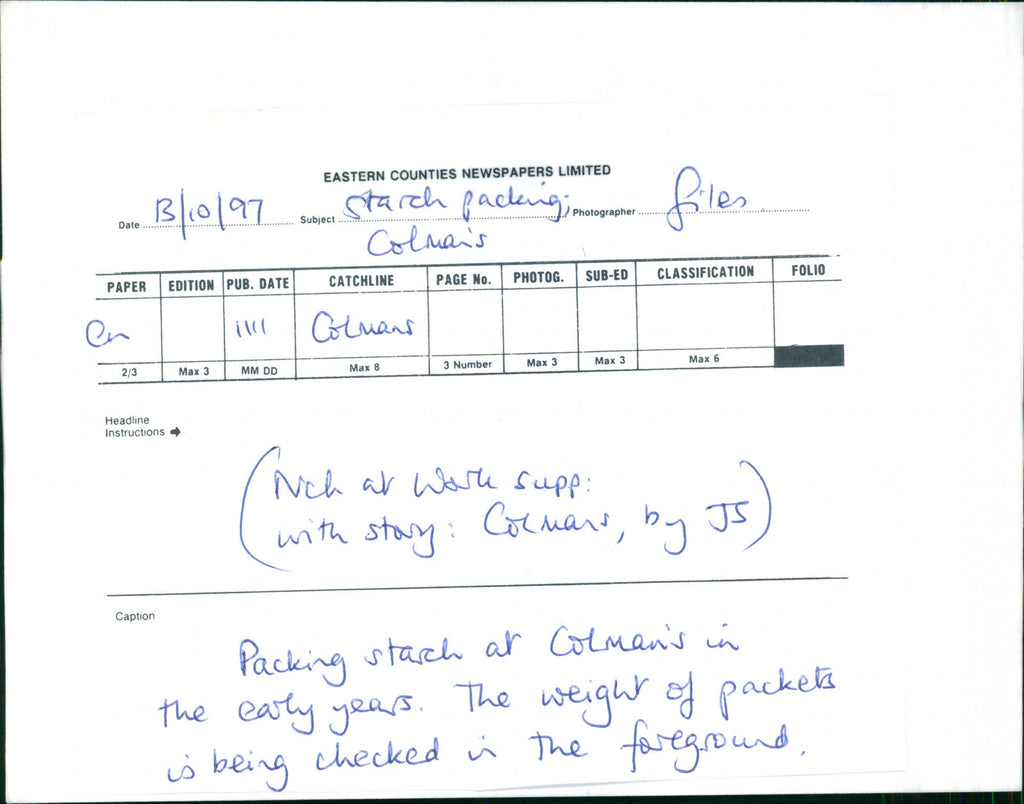 EASTERN COUNTIES NEWSPAPERS LIMITED
Date 13/10/97 Subject Starch packing; Photographer files
Colman's
PAPER EDITION PUB. DATE CATCHLINE PAGE No. PHOTOG. SUB-ED CLASSIFICATION FOLIO
1111 Colmans
2/3 Max 3 MM DD Max 8 3 Number Max 3 Max 3 Max 6
Headline
Instructions
(Nch at Work supp:
with story: Colmans, by JS)
Caption
Packing starch at Colman's in
the early years. The weight of packets
is being checked in the foreground.